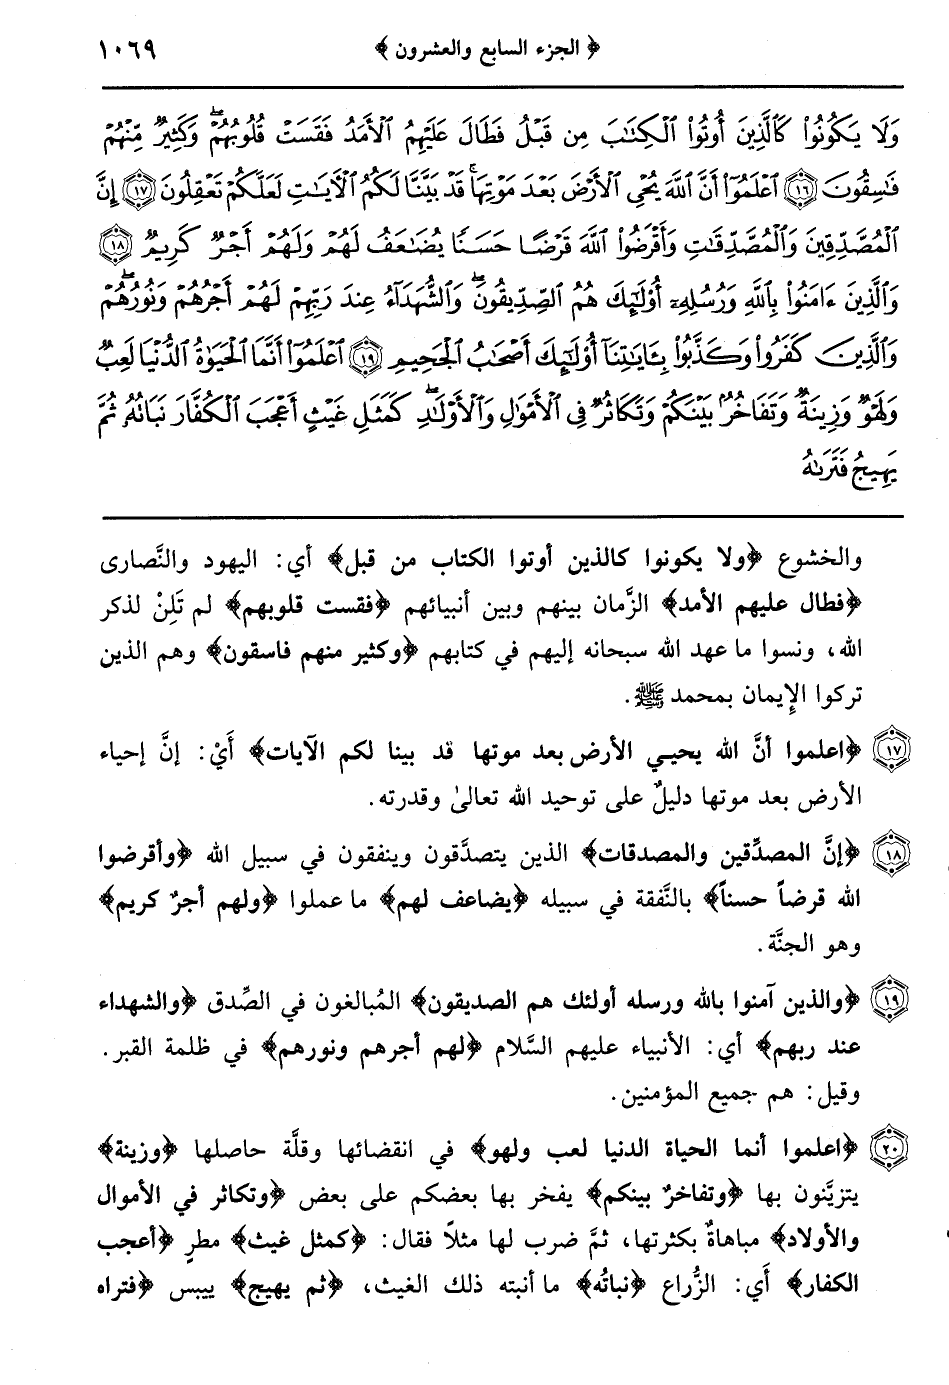 ﴿ الجزء السابع والعشرون ﴾ ١٠٦٩
وَلَا يَكُونُوا۟ كَٱلَّذِينَ أُوتُوا۟ ٱلْكِتَٰبَ مِن قَبْلُ فَطَالَ عَلَيْهِمُ ٱلْأَمَدُ فَقَسَتْ قُلُوبُهُمْ ۖ وَكَثِيرٌ مِّنْهُمْ
فَٰسِقُونَ ﴿١٦﴾ ٱعْلَمُوٓا۟ أَنَّ ٱللَّهَ يُحْىِ ٱلْأَرْضَ بَعْدَ مَوْتِهَا ۚ قَدْ بَيَّنَّا لَكُمُ ٱلْءَايَٰتِ لَعَلَّكُمْ تَعْقِلُونَ ﴿١٧﴾ إِنَّ
ٱلْمُصَّدِّقِينَ وَٱلْمُصَّدِّقَٰتِ وَأَقْرَضُوا۟ ٱللَّهَ قَرْضًا حَسَنًا يُضَٰعَفُ لَهُمْ وَلَهُمْ أَجْرٌ كَرِيمٌ ﴿١٨﴾
وَٱلَّذِينَ ءَامَنُوا۟ بِٱللَّهِ وَرُسُلِهِۦٓ أُو۟لَٰٓئِكَ هُمُ ٱلصِّدِّيقُونَ ۖ وَٱلشُّهَدَآءُ عِندَ رَبِّهِمْ لَهُمْ أَجْرُهُمْ وَنُورُهُمْ ۖ
وَٱلَّذِينَ كَفَرُوا۟ وَكَذَّبُوا۟ بِـَٔايَٰتِنَآ أُو۟لَٰٓئِكَ أَصْحَٰبُ ٱلْجَحِيمِ ﴿١٩﴾ ٱعْلَمُوٓا۟ أَنَّمَا ٱلْحَيَوٰةُ ٱلدُّنْيَا لَعِبٌ
وَلَهْوٌ وَزِينَةٌ وَتَفَاخُرٌۢ بَيْنَكُمْ وَتَكَاثُرٌ فِى ٱلْأَمْوَٰلِ وَٱلْأَوْلَٰدِ ۖ كَمَثَلِ غَيْثٍ أَعْجَبَ ٱلْكُفَّارَ نَبَاتُهُۥ ثُمَّ
يَهِيجُ فَتَرَىٰهُ
والخشوع ﴿ولا يكونوا كالذين أوتوا الكتاب من قبل﴾ أي: اليهود والنَّصارى
﴿فطال عليهم الأمد﴾ الزَّمان بينهم وبين أنبيائهم ﴿فقست قلوبهم﴾ لم تَلِنْ لذكر
الله، ونسوا ما عهد الله سبحانه إليهم في كتابهم ﴿وكثير منهم فاسقون﴾ وهم الذين
تركوا الإِيمان بمحمد ﷺ.
﴿١٧﴾ ﴿اعلموا أنَّ الله يحيي الأرض بعد موتها قد بينا لكم الآيات﴾ أَيْ: إنَّ إحياء
الأرض بعد موتها دليلٌ على توحيد الله تعالىٰ وقدرته.
﴿١٨﴾ ﴿إنَّ المصدِّقين والمصدقات﴾ الذين يتصدَّقون وينفقون في سبيل الله ﴿وأقرضوا
الله قرضاً حسناً﴾ بالنَّفقة في سبيله ﴿يضاعف لهم﴾ ما عملوا ﴿ولهم أجرٌ كريم﴾
وهو الجنَّة.
﴿١٩﴾ ﴿والذين آمنوا بالله ورسله أولئك هم الصديقون﴾ المُبالغون في الصِّدق ﴿والشهداء
عند ربهم﴾ أي: الأنبياء عليهم السَّلام ﴿لهم أجرهم ونورهم﴾ في ظلمة القبر.
وقيل: هم جميع المؤمنين.
﴿٢٠﴾ ﴿اعلموا أنما الحياة الدنيا لعب ولهو﴾ في انقضائها وقلَّة حاصلها ﴿وزينة﴾
يتزيَّنون بها ﴿وتفاخرٌ بينكم﴾ يفخر بها بعضكم على بعض ﴿وتكاثر في الأموال
والأولاد﴾ مباهاةٌ بكثرتها، ثمَّ ضرب لها مثلاً فقال: ﴿كمثل غيث﴾ مطرٍ ﴿أعجب
الكفار﴾ أَي: الزُّراع ﴿نباتُه﴾ ما أنبته ذلك الغيث، ﴿ثم يهيج﴾ ييبس ﴿فتراه